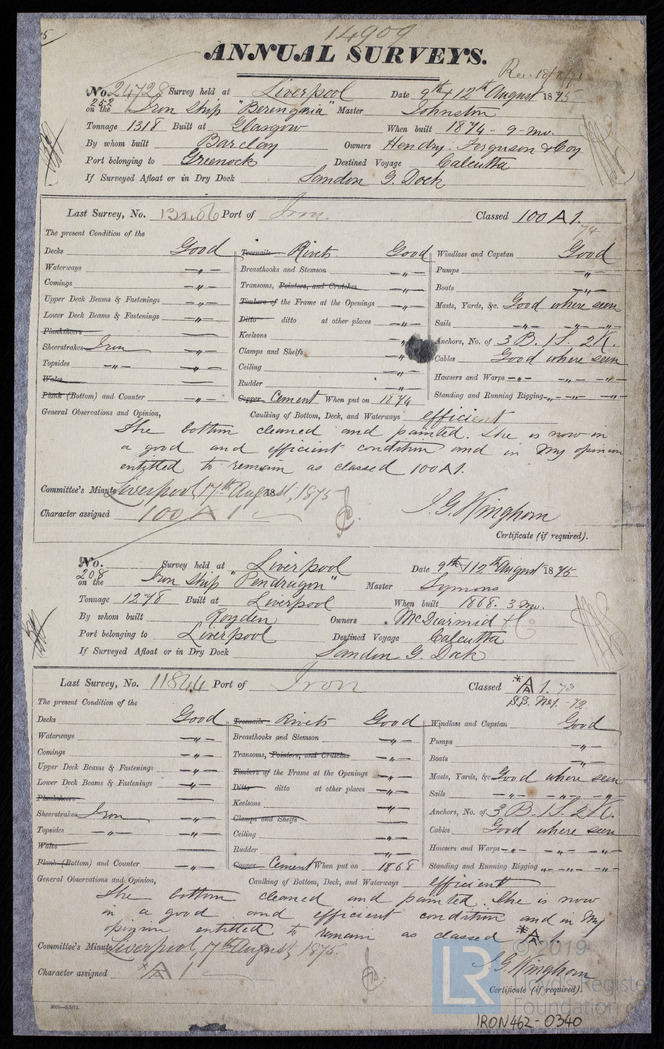 14909
ANNUAL SURVEYS.
Rec 18/8/75
No. 24728 Survey held at Liverpool Date 9th & 12th August 1875
252 on the Iron Ship "Berengaria" Master Johnston
Tonnage 1318 Built at Glasgow When built 1874 - 9 mo.
By whom built Barclay Owners Hendry Ferguson & Coy
Port belonging to Greenock Destined Voyage Calcutta
If Surveyed Afloat or in Dry Dock Sandon G. Dock
Last Survey, No. Port of Iron. Classed 100 A 1.
74
The present Condition of the
Decks Good Treenails Rivets Good Windlass and Capstan Good
Waterways -„- Breasthooks and Stemson -„- Pumps -„-
Comings -„- Transoms, Pointers, and Crutches -„- Boats -„-
Upper Deck Beams & Fastenings -„- Timbers of the Frame at the Openings -„- Masts, Yards, &c. Good where seen
Lower Deck Beams & Fastenings -„- Ditto ditto at other places -„- Sails -„- -„- -„-
Plankshears Keelsons -„- Anchors, No. of 3 B. 1 S. 2 K.
Sheerstrakes Iron -„- Clamps and Shelfs -„- Cables Good where seen
Topsides -„- -„- Ceiling -„- Hawsers and Warps -„- -„- -„-
Wales Rudder -„- Standing and Running Rigging -„- -„- -„-
Plank (Bottom) and Counter -„- Copper Cement When put on 1874
General Observations and Opinion, Caulking of Bottom, Deck, and Waterways efficient
The bottom cleaned and painted. She is now in
a good and efficient condition and in my opinion
entitled to remain as classed 100A1.
Committee's Minute Liverpool, 17th August, 1875
Character assigned 100 A 1
S. G. Kinghorn
Certificate (if required).
No. Survey held at Liverpool Date 9th & 12th August 1875
208 on the Iron Ship "Pendragon" Master Symons
Tonnage 1278 Built at Liverpool When built 1868. 3 mo.
By whom built Royden Owners McDiarmid & Co
Port belonging to Liverpool Destined Voyage Calcutta
If Surveyed Afloat or in Dry Dock Sandon G. Dock
Last Survey, No. 11844 Port of Iron Classed *A 1. 72
The present Condition of the
Decks Good Treenails Rivets Good Windlass and Capstan Good
Waterways -„- Breasthooks and Stemson -„- Pumps -„-
Comings -„- Transoms, Pointers, and Crutches -„- Boats -„-
Upper Deck Beams & Fastenings -„- Timbers of the Frame at the Openings -„- Masts, Yards, &c. Good where seen
Lower Deck Beams & Fastenings -„- Ditto ditto at other places -„- Sails -„- -„- -„-
Plankshears Keelsons -„- Anchors, No. of 3 B. 1 S. 2 K.
Sheerstrakes Iron -„- Clamps and Shelfs Cables Good where seen
Topsides -„- -„- Ceiling -„- Hawsers and Warps -„- -„- -„-
Wales Rudder -„- Standing and Running Rigging -„- -„- -„-
Plank (Bottom) and Counter -„- Copper Cement When put on 1868
General Observations and Opinion, Caulking of Bottom, Deck, and Waterways efficient
The bottom cleaned and painted. She is now
in a good and efficient condition and in my
opinion entitled to remain as classed *A 1.
Committee's Minute Liverpool, 17th August, 1875.
Character assigned *A 1
S. G. Kinghorn
Certificate (if required).
LR
© 2019
Lloyd's Register
Foundation
IRON462-0340